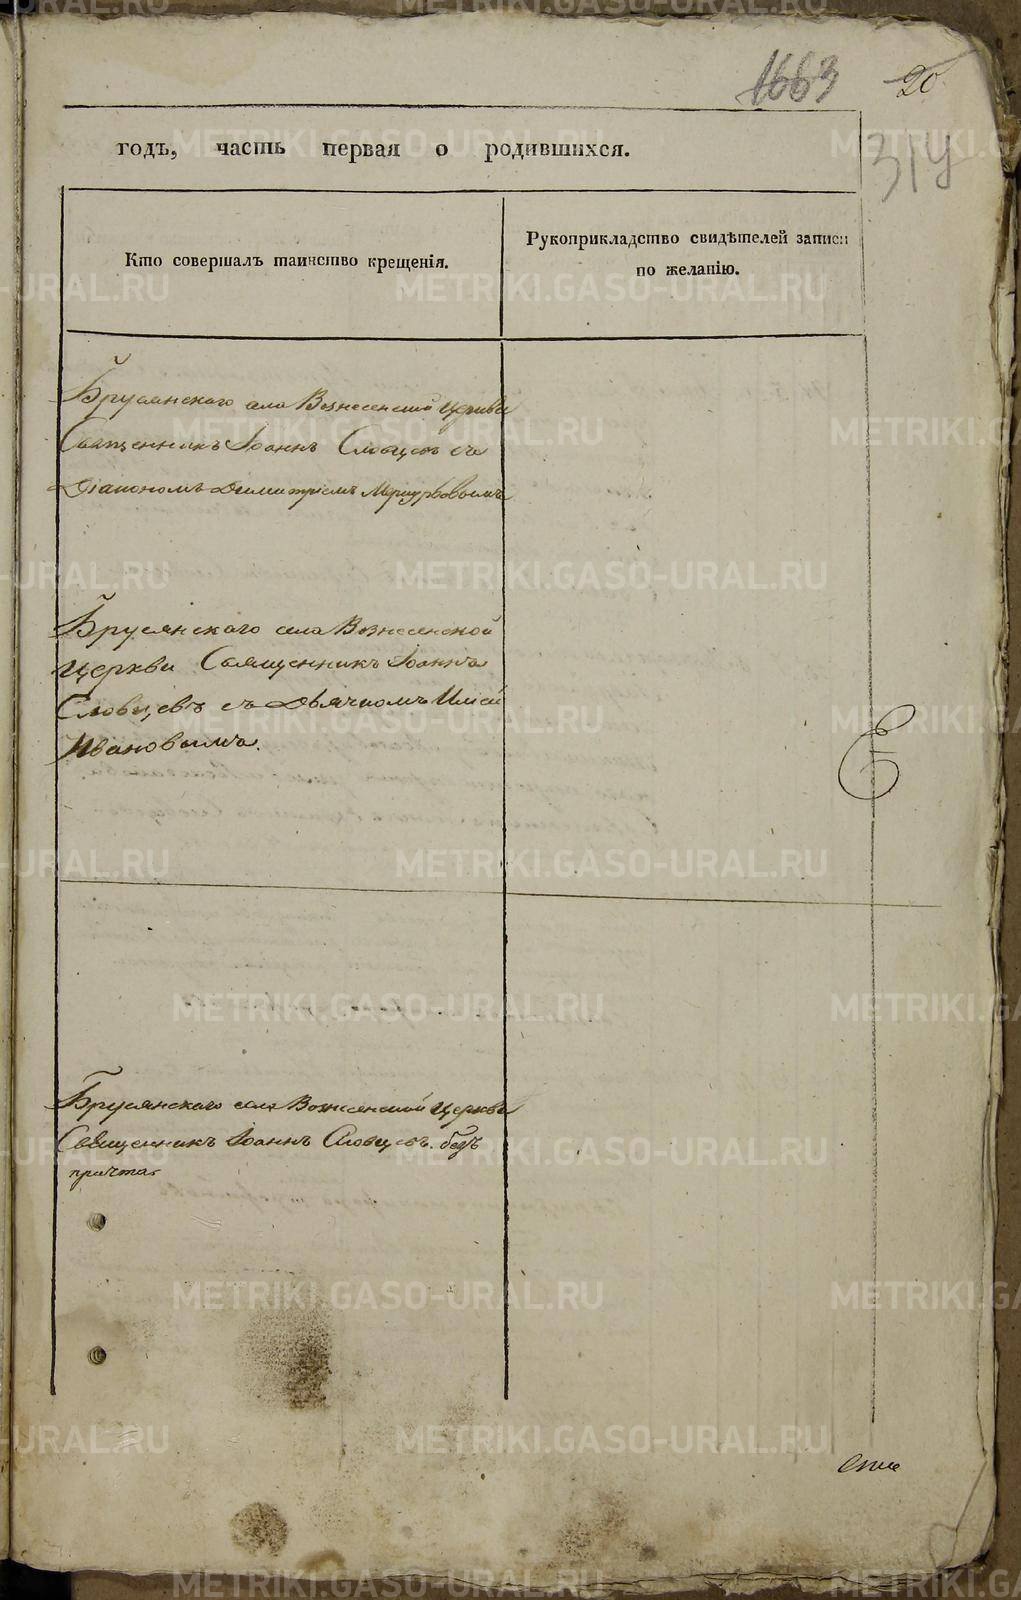 1663
20
314
годъ, часть первая о родившихся.
Кто совершалъ таинство крещенія.
Рукоприкладство свидѣтелей записи
по желанію.
Брусянскаго села Вознесенской Церкви
Священникъ Іоаннъ Словцевъ съ
Діакономъ Димитріемъ Меркурьевымъ
Брусянскаго села Вознесенской
Церкви Священникъ Іоаннъ
Словцевъ съ Дьячкомъ
Ивановымъ.
Брусянскаго села Вознесенской Церкви
Священникъ Іоаннъ Словцевъ. безъ
причта
METRIKI.GASO-URAL.RU